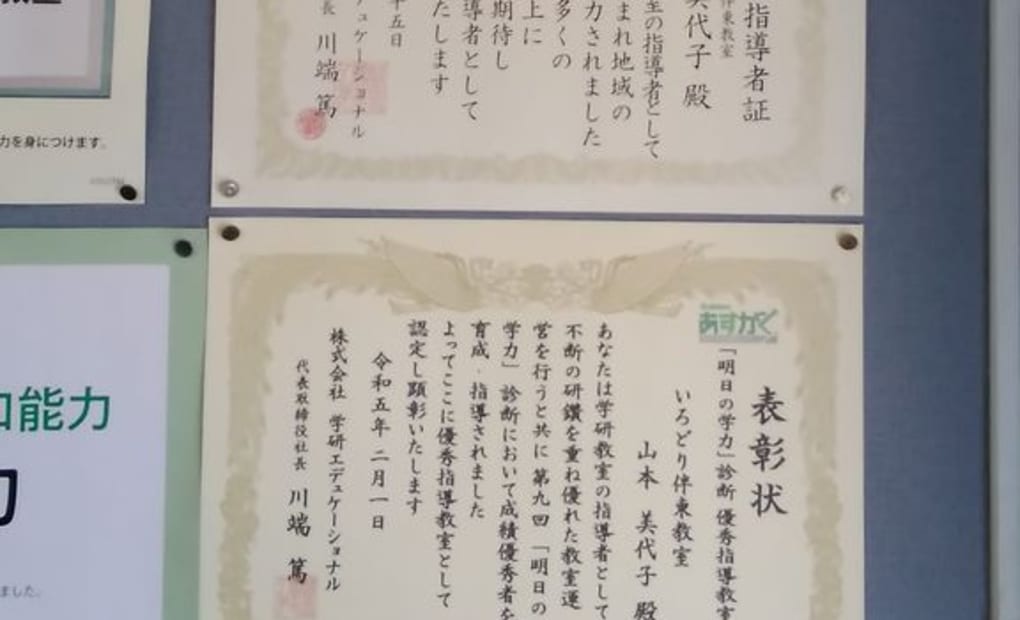 指導者証
伴東教室
美代子 殿
室の指導者として
まれ地域の
力されました
多くの
上に
期待し
導者として
たします
十五日
デュケーショナル
長 川端 篤
力を身につけます。
能力
力
ました。
あすがく
表彰状
「明日の学力」診断 優秀指導教室
いろどり伴東教室
山本 美代子 殿
あなたは学研教室の指導者として
不断の研鑽を重ね優れた教室運
営を行うと共に 第九回 「明日の
学力」診断において成績優秀者を
育成・指導されました
よってここに優秀指導教室として
認定し顕彰いたします
令和五年 二月一日
株式会社 学研エデュケーショナル
代表取締役社長 川端 篤